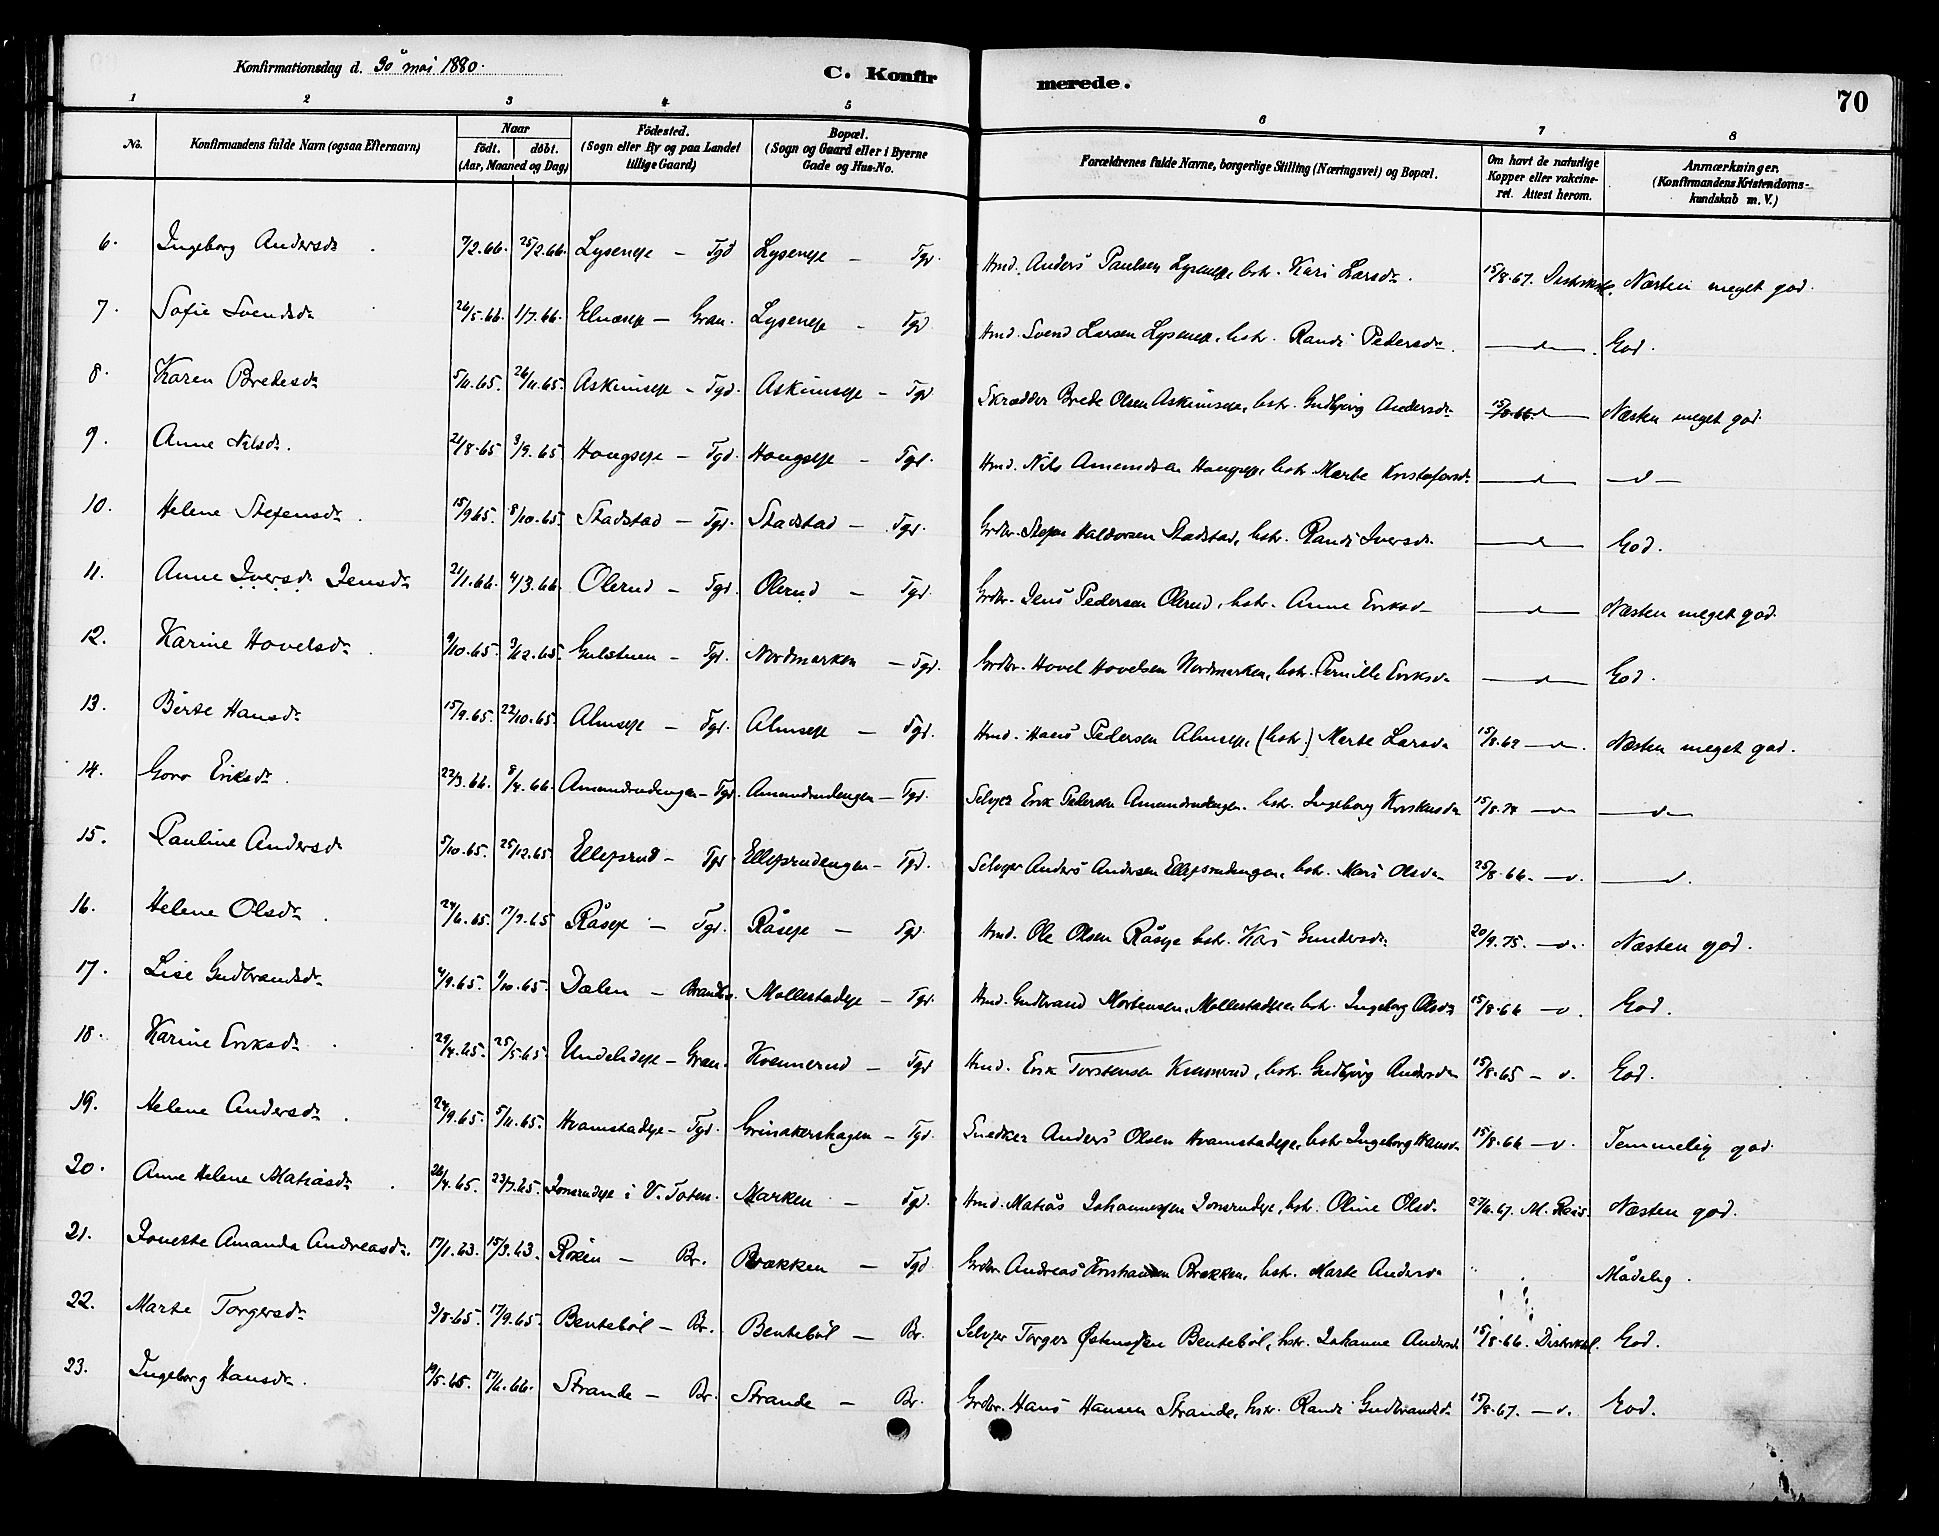 Konfirmationsdag d. 30 mai 1880.
C. Konfirmerede.
70
1 2 3 4 5 6 7 8
No.
Konfirmandens fulde Navn (ogsaa Efternavn)
Naar
födt. döbt.
(Aar, Maaned og Dag)
Födested.
(Sogn eller By og paa Landet
tillige Gaard)
Bopæl.
(Sogn og Gaard eller i Byerne
Gade og Hus-No.
Forældrenes fulde Navne, borgerlige Stilling (Næringsvei) og Bopæl.
Om havt de naturlige
Kopper eller vakcine-
ret. Attest herom.
Anmærkninger.
(Konfirmandens Kristendoms-
kundskab m. V.)
6. Ingeborg Andersdr. 7/2.66. 25/2.66. Lyseneje – Tgd Lyseneje – Tgd. Hmd. Anders Paulsen Lyseneje, hstr. Kari Larsdr. 15/8.67. Næsten meget god.
7. Sofie Svendsdr 26/5.66. 1/7.66. – Gran. Lyseneje – Tgd Hmd. Svend Larsen Lyseneje, hstr. Randi Pedersdr. —d—. God.
8. Karen Bredesdr 5/11.65. 26/11.65. Askimseje – Tgd. Askimseje – Tgd Skrædder Brede Olsen Askimseje, hstr. Gudbjörg Andersdr 15/8.66. Næsten meget god
9. Anne Nilsdr. 21/8.65 3/9.65 Hougseje – Tgd. Hougseje – Tgd. Hmd. Nils Amundsen Hougseje, hstr. Marte Kristofersdr —d— —d—
10. Helene Stefensdr. 15/9.65. 8/10.65. Stadstad – Tgd. Stadstad – Tgd. Grdbr. Haldorsen Stadstad, hstr. Randi Iversdr. —d— God.
11. Anne Iversdr. Jensdr 21/1.66. 4/3.66. Olerud – Tgd. Olerud – Tgd. Grdbr. Jens Pedersen Olerud, hstr. Anne Eriksd —d— Næsten meget god.
12. Karine Hovelsdr. 9/10.65. 3/12.65. Gulstuen – Tgd. Nordmarken – Tgd. Grdbr. Hovel Hovelsen Nordmarken, hstr. Pernille Eriksdr —d— God.
13. Berte Hansdr 15/9.65. 22/10.65. Almseje – Tgd. Almseje – Tgd. Hmd. Hans Pedersen Almseje, (hstr.) Marte Larsdr 15/8.62 —d. Næsten meget god.
14. Goro Eriksdr. 22/3.66. 8/4.66. Amundrudengen – Tgd. Amundrudengen – Tgd. Selvejer Erik Pedersen Amundrudengen. hstr. Ingeborg 15/8.74 —d— —d—
15. Pauline Andersdr 5/10.65. 25/12.65. Ellefsrud – Tgd. Ellefsrudengen – Tgd. Selvejer Anders Andersen Ellefsrudengen, hstr. Mari Olsdr 25/8.66. —d. —d.
16. Helene Olsdr. 24/6.65. 17/9.65 Råseje – Tgd. Råseje – Tgd. Hmd. Ole Olsen Råseje hstr. Kari Gundersdr 20/9.75. —d. Næsten god.
17. Lise Gudbrandsdr 4/9.65. 1/10.65. Dælen – Brandbu. Mollestadeje – Tgd. Hmd. Gudbrand Mortensen, Mollestadeje, hstr. Ingeborg Olsdr 15/8.66 —d. God.
18. Karine Eriksdr. 29/4.65. 25/5.65. – Gran. Kvennerud – Tgd Hmd. Erik Torstensen Kvennerud, hstr. Gudbjörg Andersdr 15/8.65 – d. God.
19. Helene Andersdr. 24/9.65. 5/11.65. Hvamstadeje – Tgd. Grinakerhagen – Tgd. Snedker Anders Olsen Hvamstadeje, hstr Ingeborg Hansdr 15/8.66 —d. Temmelig god.
20. Anne Helene Matiasdr. 26/4.65. 23/7.65. Jonsrudeje i V. Toten. Marken – Tgd. Hmd. Matias Johannessen Jonsrudeje, hstr. Oline Olsdr. 27/6.67. Næsten god.
21. Jonette Amanda Andreasdr. 17/1.63. 15/3.63. Röken – Br. Brækken – Tgd Grdbr. Andreas Kristiansen Brækken, hstr. Marte Andersdr Mådelig.
22. Marte Torgersdr 3/8.65. 17/9.65. Benteböl – Br. Benteböl – Br. Selvejer Torger Östensen Benteböl, hstr. Johanne Andersdr 15/8.66. God.
23. Ingeborg Hansdr. 19/5.65. 17/6.66. Strande – Br. Strande – Br. Grdbr. Hans Hansen Strande, hstr. Randi Gudbrandsdr. 15/8.67. —d. God.